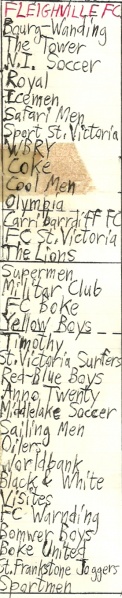 FLEIGHVILLE FC
Bourg-Wanding
The Tower
N.I. Soccer
Royal
Icemen
Safari Men
Sport St. Victoria
WBRY
Coke
Cool Men
Olympia
Carribarrdiff FC
FC St. Victoria
The Lions
Supermen
Militar Club
FC Boke
Yellow Boys
Timothy
St. Victoria Surfers
Red-Blue Boys
Anno Twenty
Middlelake Soccer
Sailing Men
Oilers
Worldbank
Black & White
Visites
FC Warnding
Bomwer Boys
Boke United
St. Frankstone Joggers
Sportmen